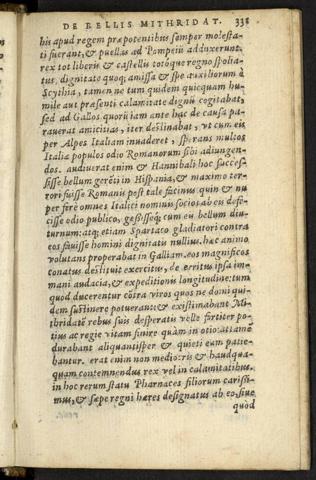 DE BELLIS MITHRIDAT. 338
his apud regem præpotentibus semper molesta-
ti fuerant, & puellas ad Pompeiũ adduxerunt.
rex tot liberis & castellis totóque regno spolia-
tus, dignitate quoq; amissa & spe auxiliorum à
Scythia, tamen ne tum quidem quicquam hu-
mile aut præsenti calamitate dignũ cogitabat,
sed ad Gallos quorũ iam ante hac de causa pa-
rauerat amicitias, iter destinabat, vt cum eis
per Alpes Italiam inuaderet, sperans multos
Italiæ populos odio Romanorum sibi adiungen-
dos. audiuerat enim & Hannibali hoc succes-
sisse bellum gerẽti in Hispania, & maximo ter-
rori fuisse Romanis post tale facinus quin & nu
per ferè omnes Italici nominis socios ab eis defe-
cisse odio publico, gessisseq; cum eu bellum diu-
turnum: atq; etiam Spartaco gladiatori contra
eos fauisse homini dignitatis nullius. hæc animo
volutans properabat in Galliam. eos magnificos
conatus destituit exercitus, deterritus ipsa im-
mani audacia, & expeditionis longitudine: tum
quod ducerentur cõtra viros quos ne domi qui-
dem sustinere potuerant: & existimabant Mi-
thridatẽ rebus suis desperatis velle fortiter po-
tius ac regie vitam finire quàm in otio: attamẽ
durabant aliquantisper & quieti eum patie-
bantur. erat enim non mediocris & haudqua-
quam contemnendus rex vel in calamitatibus.
in hoc rerum statu Pharnaces filiorum carissi-
mus, & sæpe regni hæres designatus ab eo, siue
quod